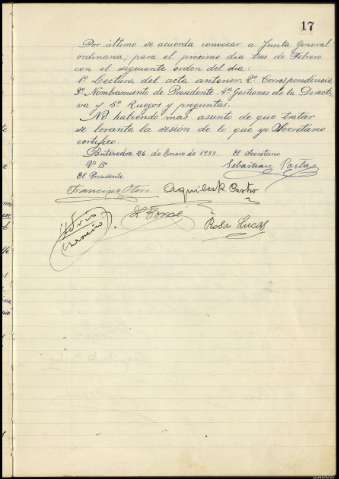 17
Por último se acuerda convocar a Junta General
ordinaria, para el proximo dia tres de Febrero
con el siguiente orden del dia:
1º Lectura del acta anterior. 2º Correspondencia
3º Nombramiento de Presidente 4º Gestiones de la Directi
va y 5º Ruegos y preguntas.
No habiendo mas asunto de que tratar
se levanta la sesion de lo que yo Secretario
certifico.
26 de Enero de El Secretario
Vº Bº Sebastian
El Presidente
Francisco Castro
Rosa Lucas